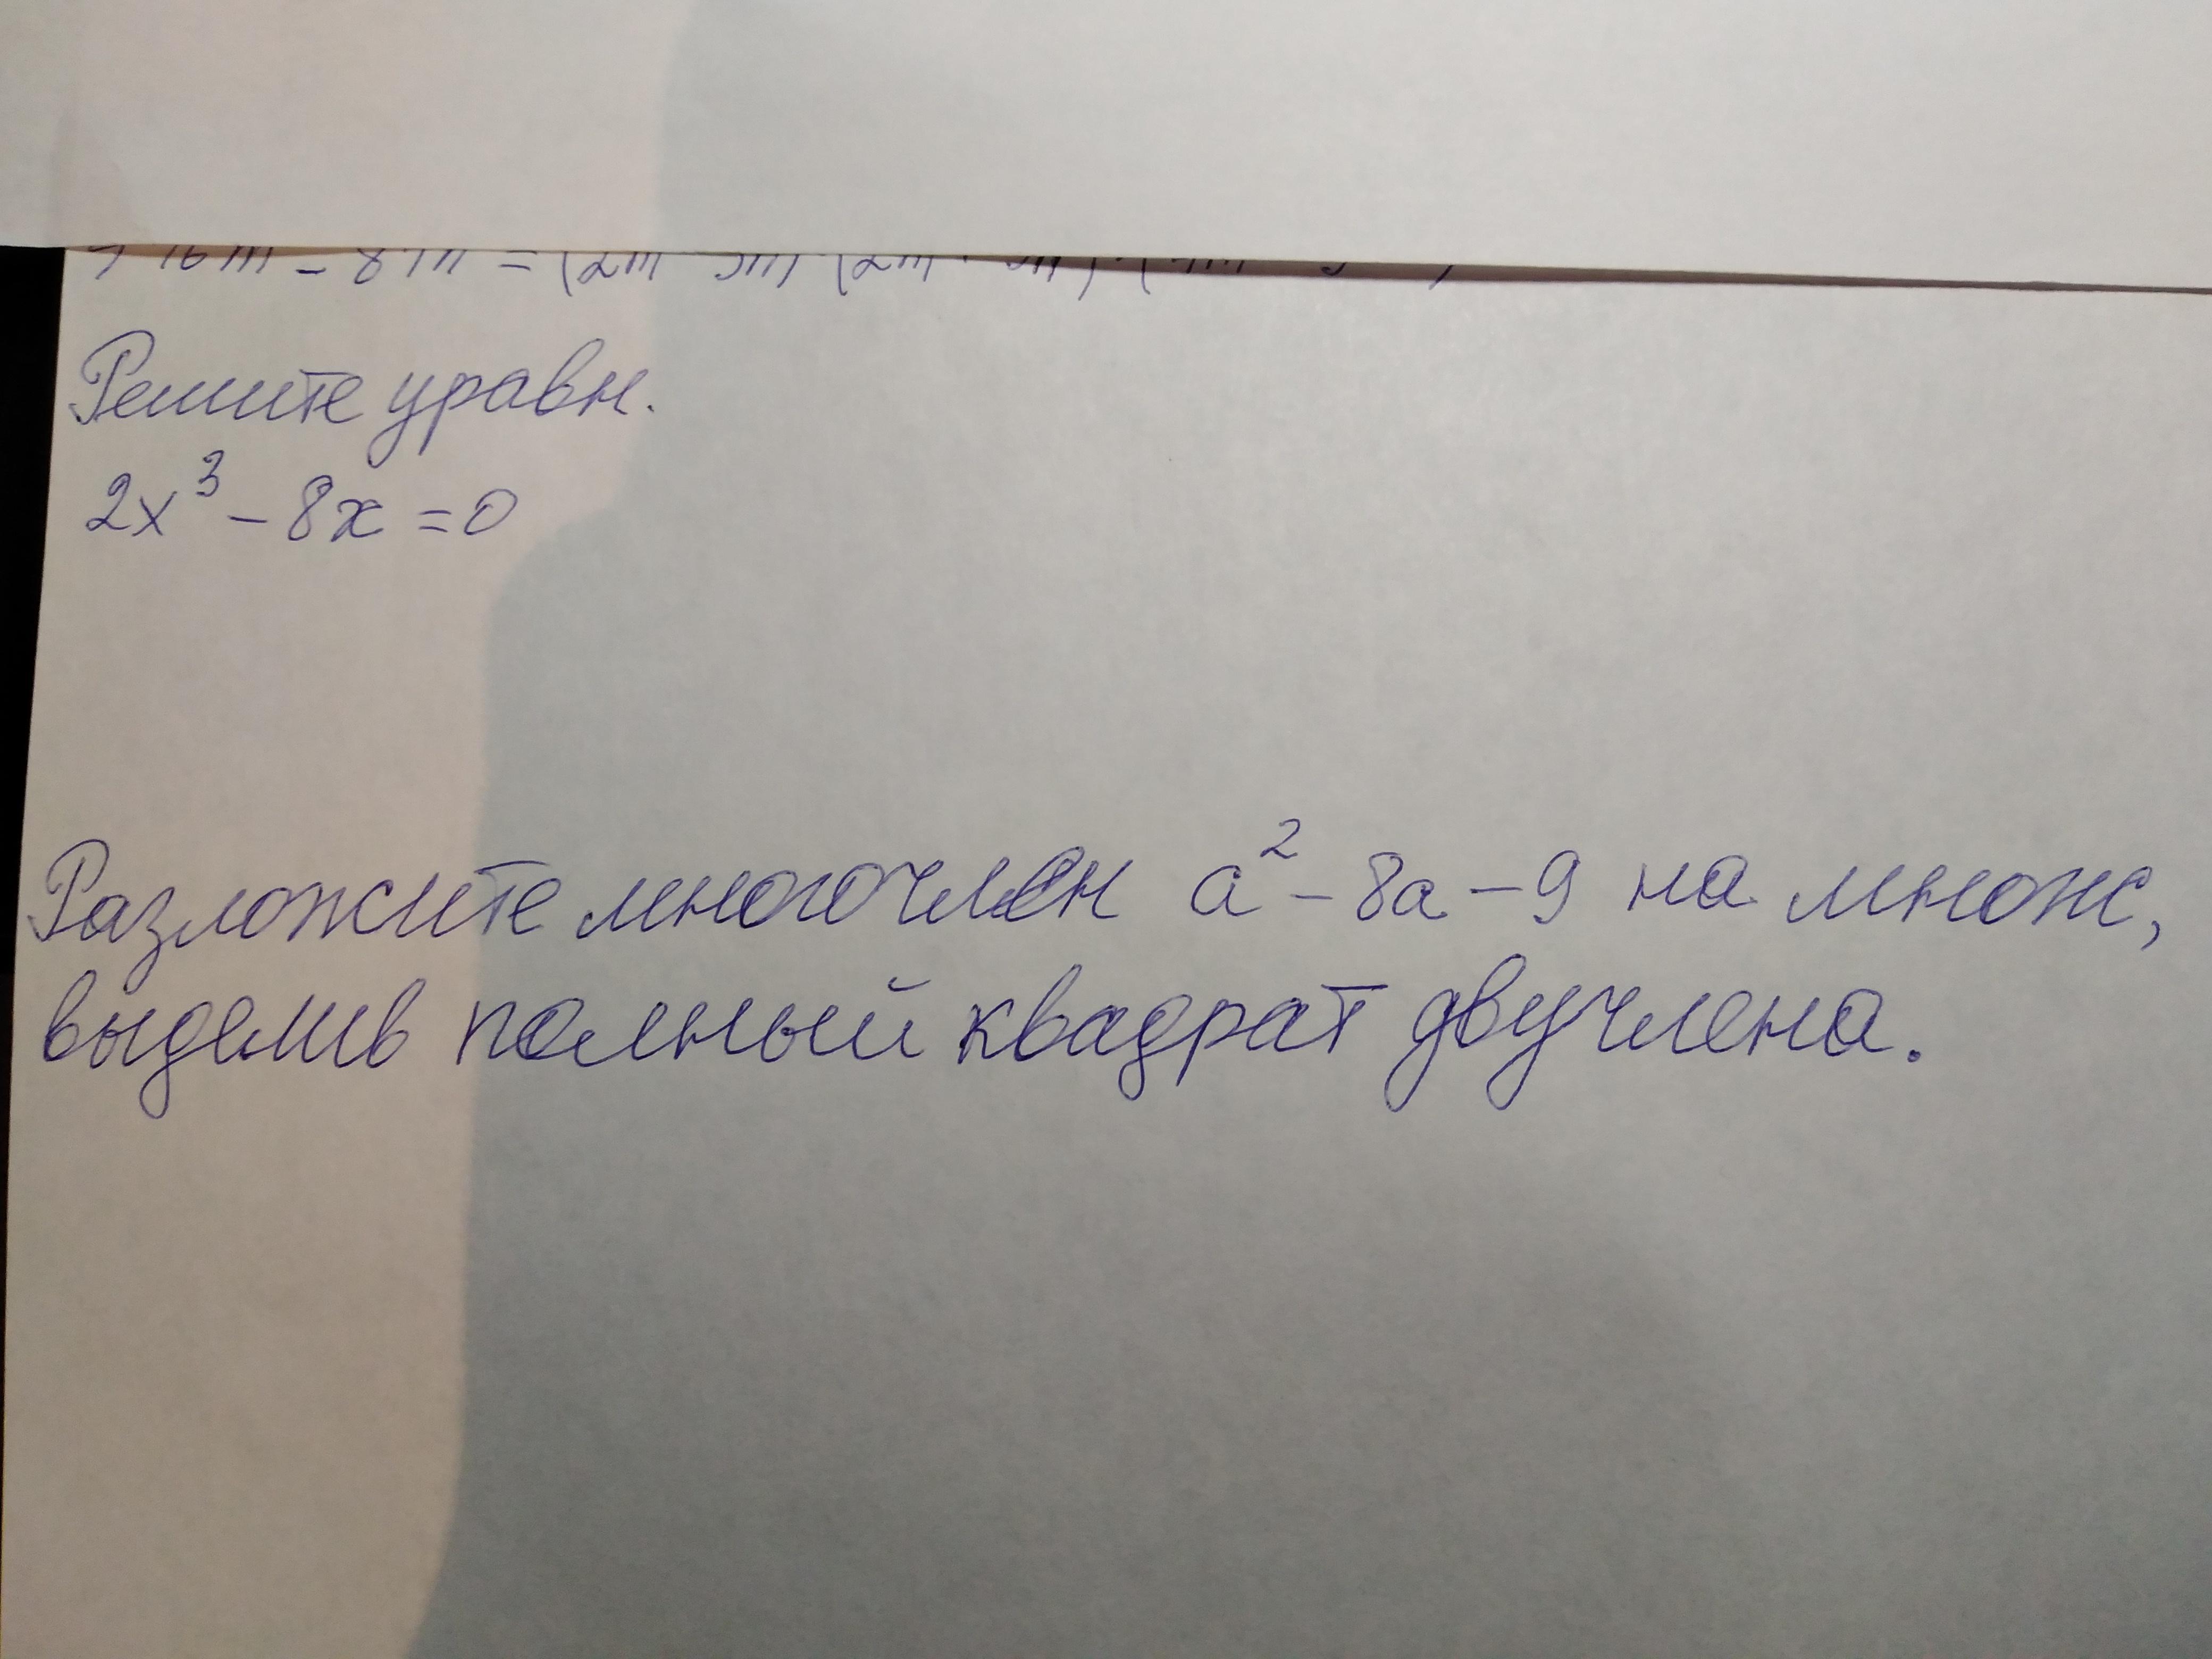 Решите уравн.
2x³ - 8x = 0
Разложите многочлен a² - 8a - 9 на множ,
выделив полный квадрат двучлена.